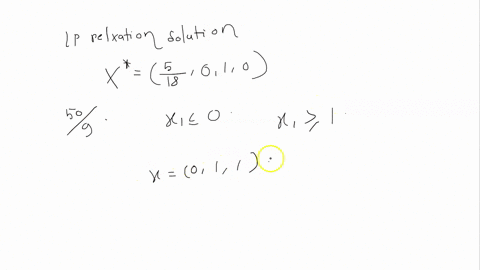 lp relxation solution
X* = (5/18, 0, 1, 0)
50/9. x₁ ≤ 0 x₁ ≥ 1
x = (0, 1, 1)